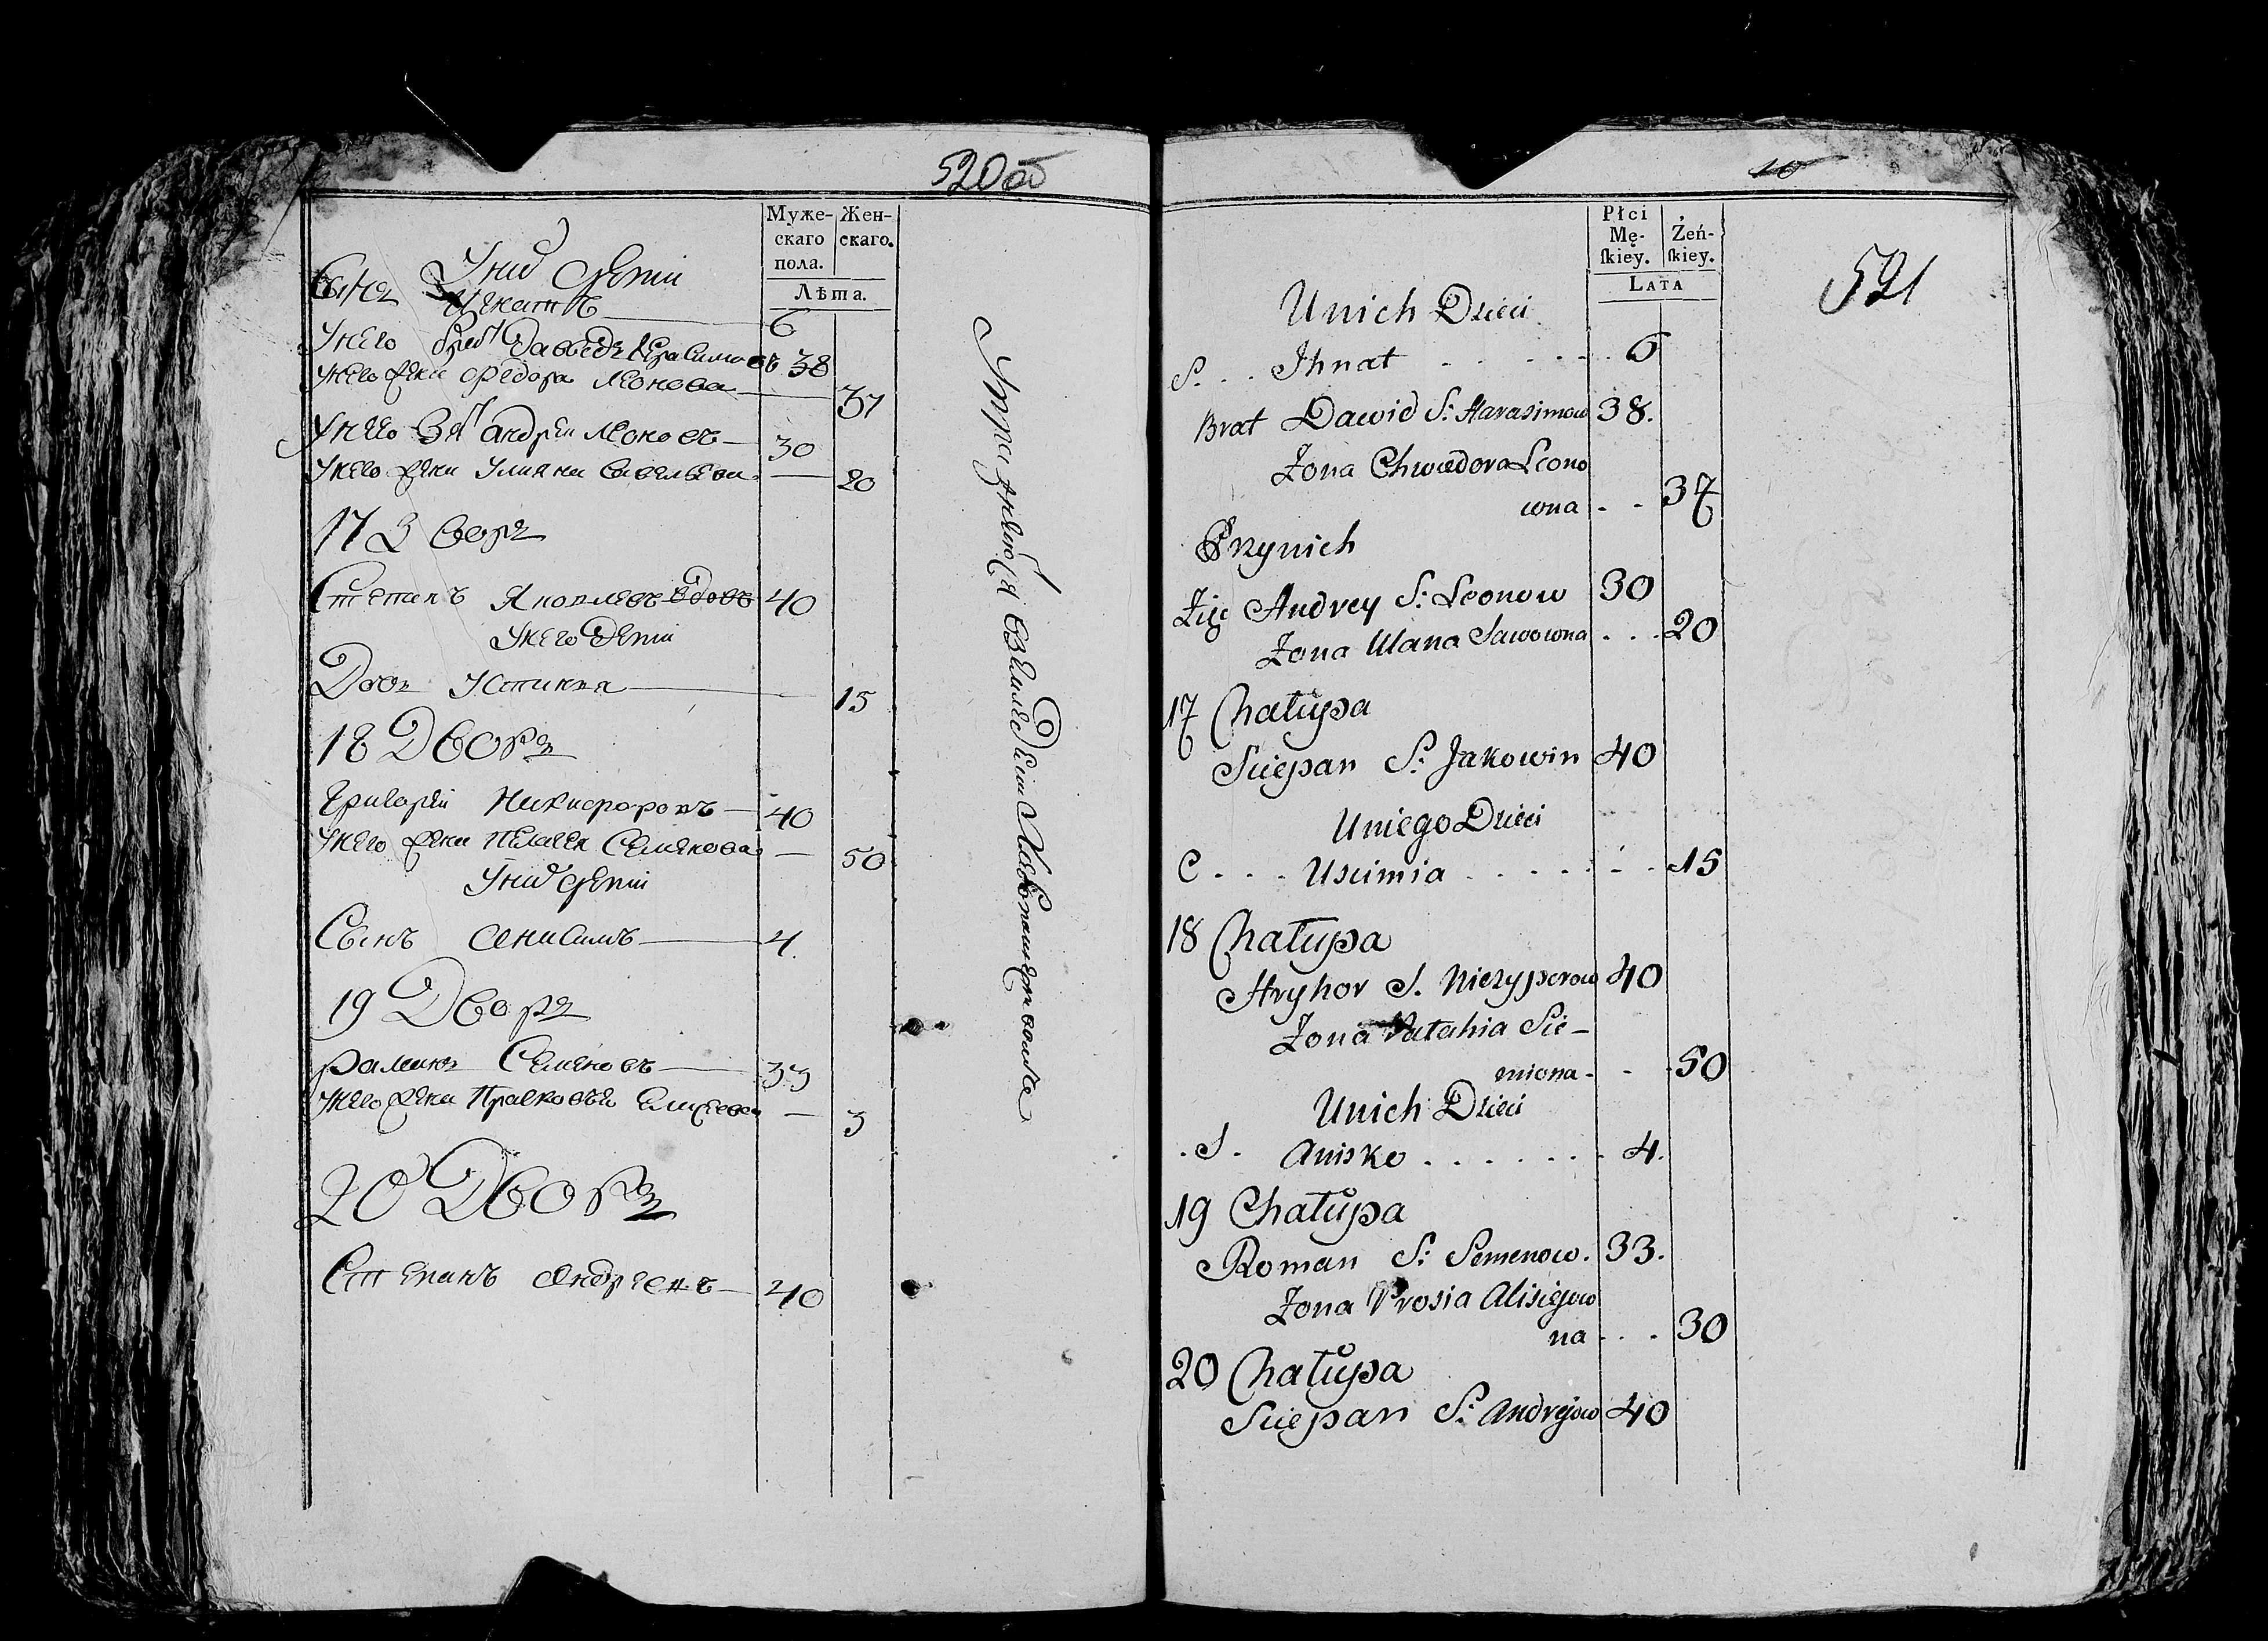 520об
Муже- Жен-
скаго скаго.
пола.
Лѣта.
У них дети
Сынъ Игнатъ 6
У него брат Давыдъ Герасимовъ 38
У него жена Федора Леонова 37
У него зят Андрей Леоновъ 30
У него жена Улияна Савельева 20
17 Дворъ
Степанъ Яковлевъ вдовъ 40
У него дети
Дочь Устинья 15
18 Дворъ
Григорей Никифоровъ 40
У него жена Пелагея Семенова 50
У них дети
Сынъ Анисимъ 4.
19 Дворъ
Романъ Семеновъ 33
У него жена Прасковья Елисеева 3
20 Дворъ
Степанъ Андреевъ 40
Płci
Mę- Żeń-
skiey. skiey.
LATA
521
Unich Dzieci
S. . . Ihnat . . . . . 6
Brat Dawid S: Harasimow 38.
Żona Chwiedora Leono
wna . . 37
Przynich
Zięć Andrey S: Leonow 30
Żona Ulana Sawowna . . . 20
17 Chałupa
Sciepan S: Jakowin 40
Uniego Dzieci
C . . . Uscimia . . . . . . . 15
18 Chałupa
Hryhor S. Niczyperow 40
Żona Pałahia Sie-
miona . . . 50
Unich Dzieci
. S . Anisko . . . . . . . 4.
19 Chałupa
Roman S: Semenow. 33.
Żona Prosia Alisiejow
na . . . 30
20 Chałupa
Sciepan S: Andrejow 40